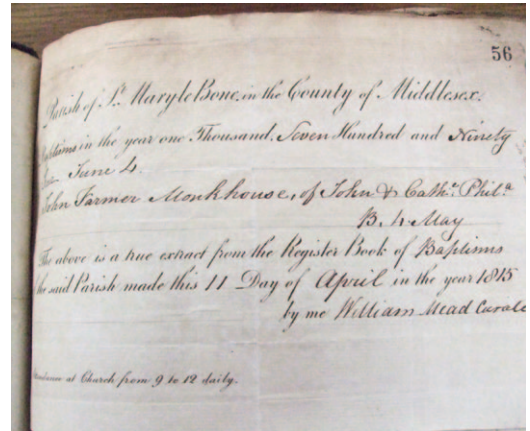 56
Parish of St. MaryleBone, in the County of Middlesex.
Baptisms in the year one Thousand, Seven Hundred and Ninety
June 4.
John Farmer Monkhouse, of John & Cathe. Phila.
B. 4 May
The above is a true extract from the Register Book of Baptisms
the said Parish made this 11 Day of April in the year 1815
by me William Mead Curate
at Church from 9 to 12 daily.